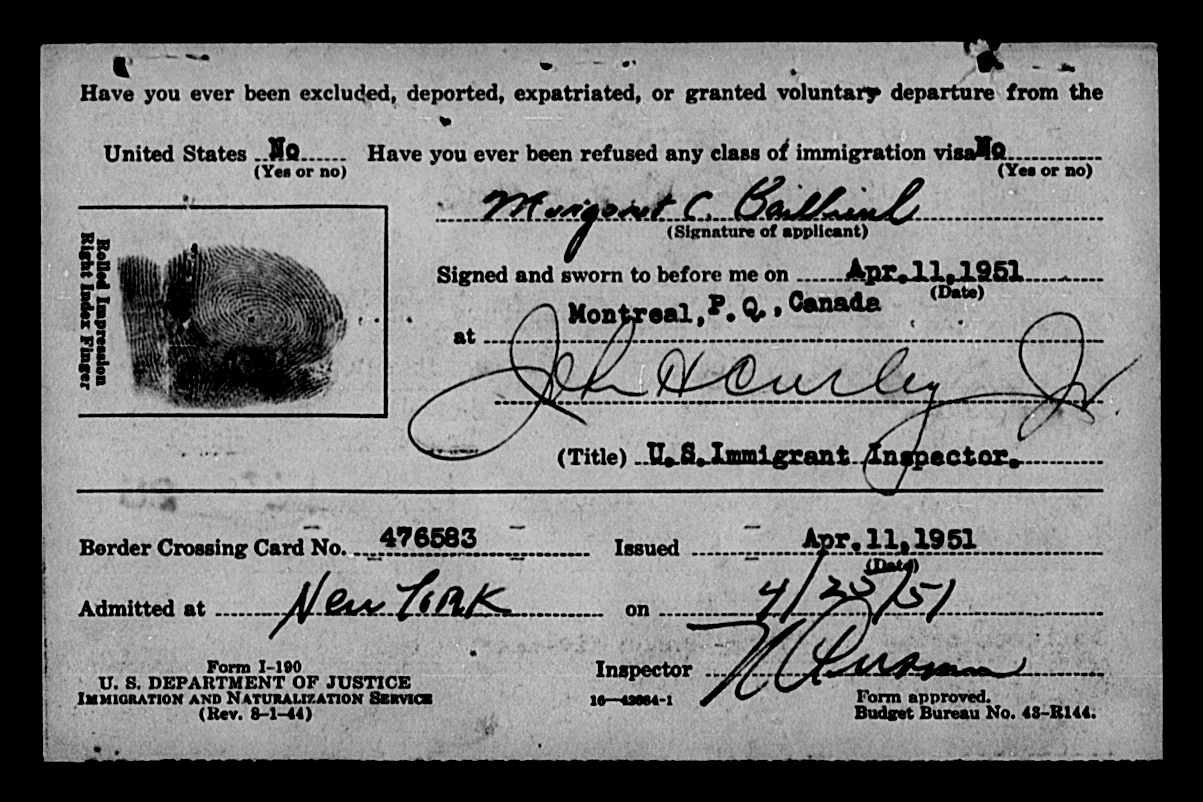 Have you ever been excluded, deported, expatriated, or granted voluntary departure from the
United States No Have you ever been refused any class of immigration visa No
(Yes or no) (Yes or no)
Margaret C.
(Signature of applicant)
Rolled Impression
Right Index Finger
Signed and sworn to before me on Apr.11,1951
(Date)
at Montreal, P. Q., Canada
John H Curley Jr
(Title) U.S.Immigrant Inspector.
Border Crossing Card No. 476583 Issued Apr.11,1951
(Date)
Admitted at New York on 4/25/51
Inspector
Form I-190
U. S. DEPARTMENT OF JUSTICE
IMMIGRATION AND NATURALIZATION SERVICE
(Rev. 8-1-44)
Form approved.
Budget Bureau No. 43-R144.